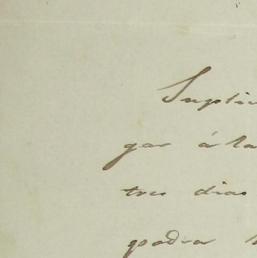 Suplic
gar á la
tres dias
podra